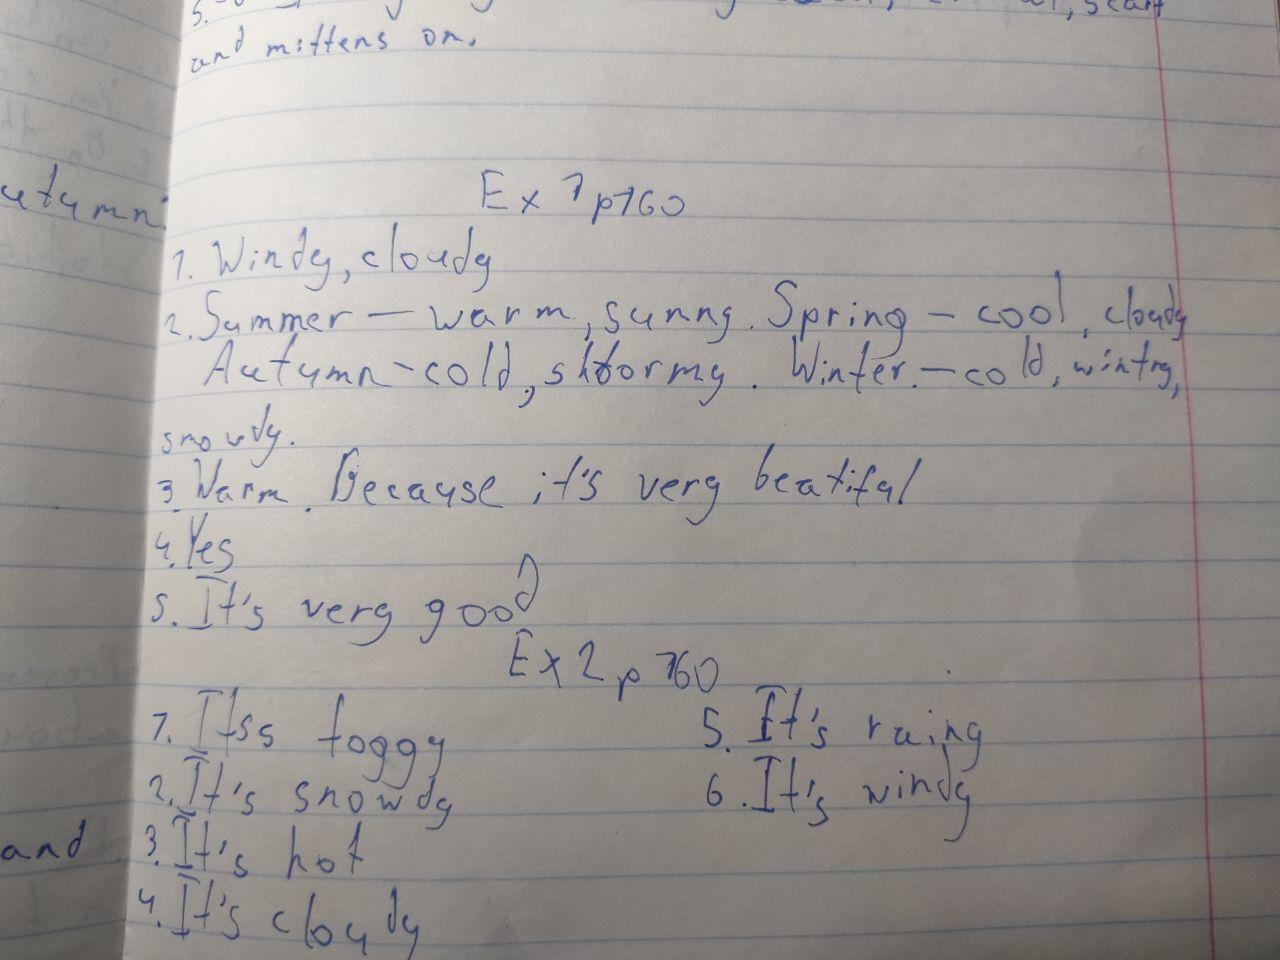 5. scarf
and mittens on.
utumn
Ex 1 p160
1. Windy, cloudy
2. Summer — warm, sunny. Spring — cool, cloudy
Autumn - cold, shtormy. Winter. — cold, wintry,
snowdy.
3. Warm. Because it's very beatiful
4. Yes
5. It's very good
Ex 2 p 160
1. Itss foggy
2. It's snowdy
3. It's hot
4. It's cloudy
5. It's raing
6. It's windy
and